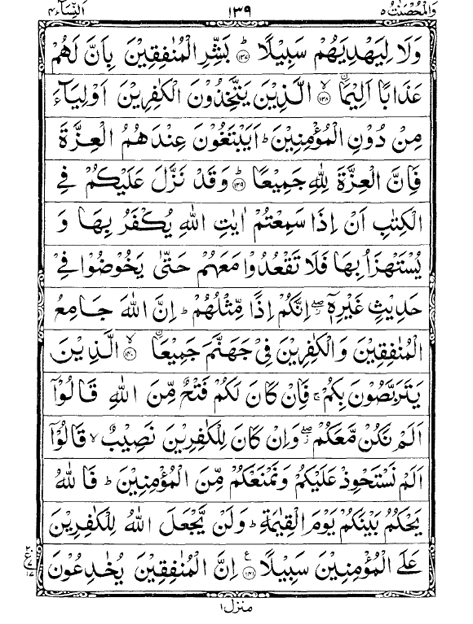 وَالْمُحْصَنٰتُ ٥ ١٣٩ اَلنِّسَآء ٤
وَلَا لِيَهْدِيَهُمْ سَبِيْلًاؕ ﴿۱۳۷﴾ بَشِّرِ الْمُنٰفِقِيْنَ بِاَنَّ لَهُمْ
عَذَابًا اَلِيْمَاۙ ﴿۱۳۸﴾ الَّذِيْنَ يَتَّخِذُوْنَ الْكٰفِرِيْنَ اَوْلِيَآءَ
مِنْ دُوْنِ الْمُؤْمِنِيْنَؕ اَيَبْتَغُوْنَ عِنْدَهُمُ الْعِزَّةَ
فَاِنَّ الْعِزَّةَ لِلّٰهِ جَمِيْعًاؕ ﴿۱۳۹﴾ وَقَدْ نَزَّلَ عَلَيْكُمْ فِي
الْكِتٰبِ اَنْ اِذَا سَمِعْتُمْ اٰيٰتِ اللّٰهِ يُكْفَرُ بِهَا وَ
يُسْتَهْزَاُ بِهَا فَلَا تَقْعُدُوْا مَعَهُمْ حَتّٰى يَخُوْضُوْا فِيْ
حَدِيْثٍ غَيْرِهٖٓ ۖ اِنَّكُمْ اِذًا مِّثْلُهُمْؕ اِنَّ اللّٰهَ جَامِعُ
الْمُنٰفِقِيْنَ وَالْكٰفِرِيْنَ فِيْ جَهَنَّمَ جَمِيْعَاۙ ﴿۱۴۰﴾ الَّذِيْنَ
يَتَرَبَّصُوْنَ بِكُمْۚ فَاِنْ كَانَ لَكُمْ فَتْحٌ مِّنَ اللّٰهِ قَالُوْٓا
اَلَمْ نَكُنْ مَّعَكُمْ ۖ وَاِنْ كَانَ لِلْكٰفِرِيْنَ نَصِيْبٌۙ قَالُوْٓا
اَلَمْ نَسْتَحْوِذْ عَلَيْكُمْ وَنَمْنَعْكُمْ مِّنَ الْمُؤْمِنِيْنَؕ فَاللّٰهُ
يَحْكُمُ بَيْنَكُمْ يَوْمَ الْقِيٰمَةِؕ وَلَنْ يَّجْعَلَ اللّٰهُ لِلْكٰفِرِيْنَ
عَلَى الْمُؤْمِنِيْنَ سَبِيْلًا ﴿۱۴۱﴾ اِنَّ الْمُنٰفِقِيْنَ يُخٰدِعُوْنَ
منزل ۱